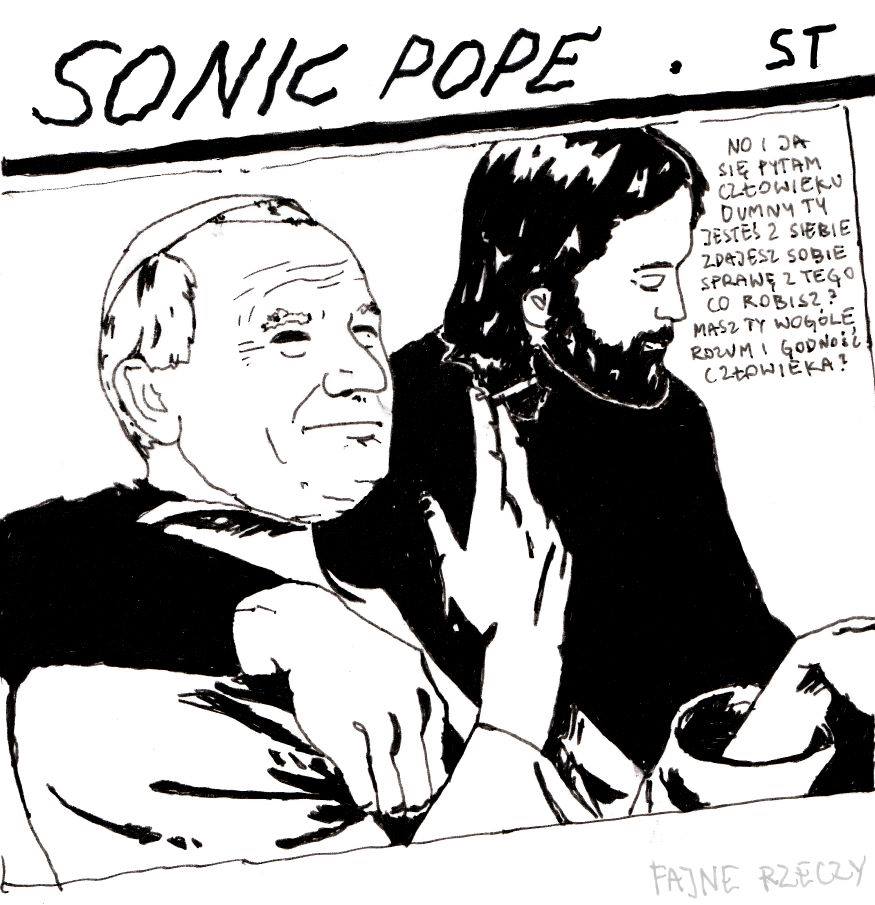 SONIC POPE . ST
NO I JA
SIĘ PYTAM
CZŁOWIEKU
DUMNY TY
JESTEŚ Z SIEBIE
ZDAJESZ SOBIE
SPRAWĘ Z TEGO
CO ROBISZ?
MASZ TY WOGÓLE
ROZUM I GODNOŚĆ
CZŁOWIEKA?
FAJNE RZECZY